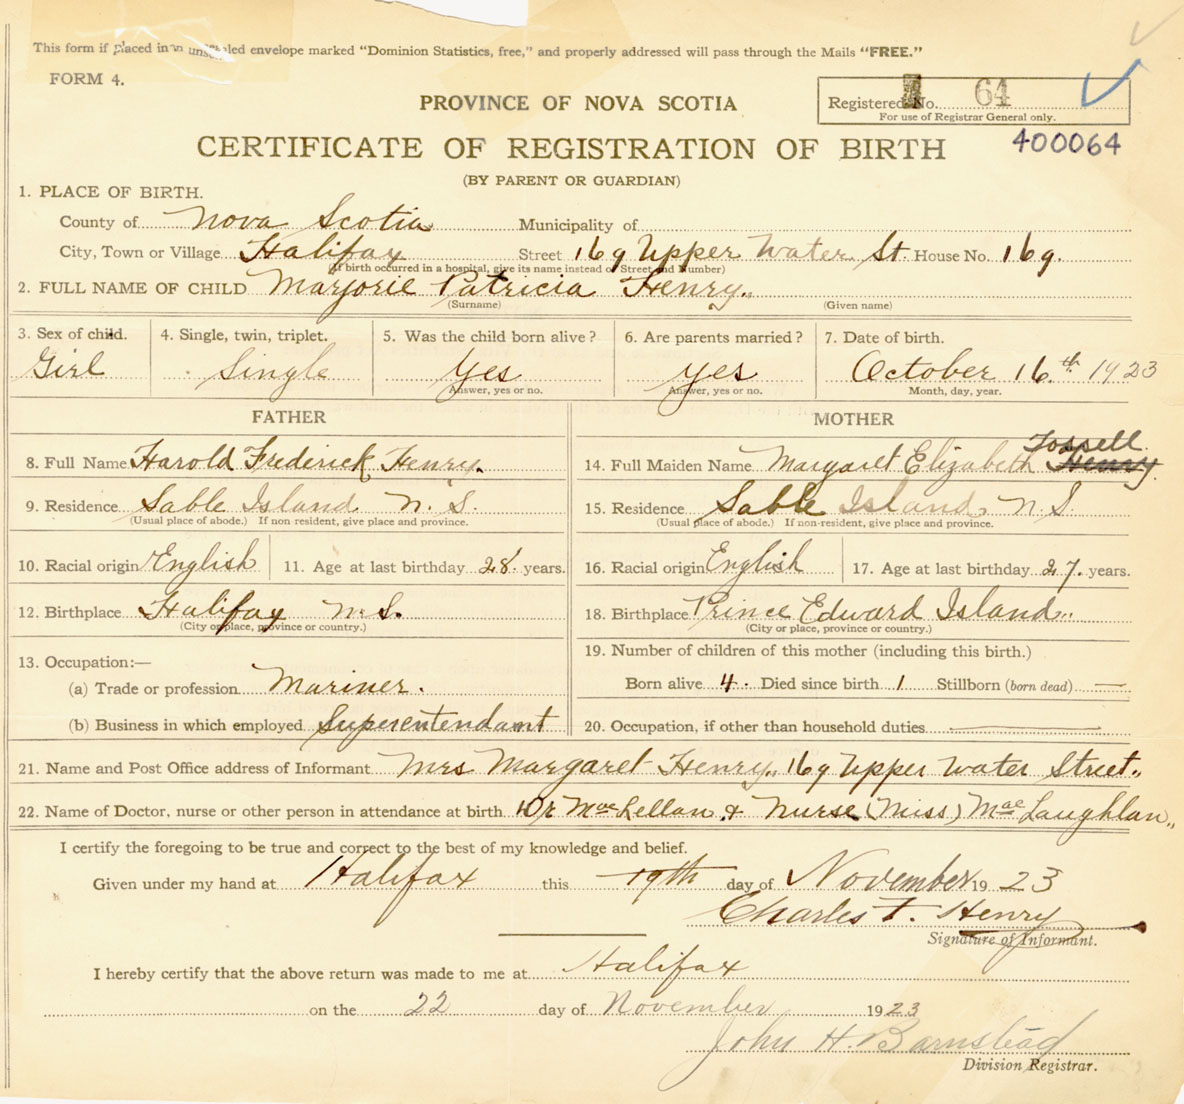 This form if placed in an unsealed envelope marked "Dominion Statistics, free," and properly addressed will pass through the Mails "FREE."
FORM 4.
PROVINCE OF NOVA SCOTIA
Registered No. 64
For use of Registrar General only.
CERTIFICATE OF REGISTRATION OF BIRTH
400064
(BY PARENT OR GUARDIAN)
1. PLACE OF BIRTH.
County of Nova Scotia Municipality of
City, Town or Village Halifax Street 169 Upper Water St. House No. 169.
(If birth occurred in a hospital, give its name instead of Street and Number)
2. FULL NAME OF CHILD Marjorie Patricia Henry.
(Surname) (Given name)
3. Sex of child. 4. Single, twin, triplet. 5. Was the child born alive? 6. Are parents married? 7. Date of birth.
Girl Single Yes Yes October 16th. 1923
Answer, yes or no. Answer, yes or no. Month, day, year.
FATHER MOTHER
Tossell
8. Full Name Harold Frederick Henry. 14. Full Maiden Name Margaret Elizabeth Henry.
9. Residence Sable Island N.S. 15. Residence Sable Island, N S.
(Usual place of abode.) If non resident, give place and province. (Usual place of abode.) If non-resident, give place and province.
10. Racial origin English 11. Age at last birthday 28. years. 16. Racial origin English 17. Age at last birthday 27. years.
12. Birthplace Halifax N.S. 18. Birthplace Prince Edward Island..
(City or place, province or country.) (City or place, province or country.)
13. Occupation:— 19. Number of children of this mother (including this birth.)
(a) Trade or profession Mariner. Born alive 4. Died since birth 1 Stillborn (born dead) —
(b) Business in which employed Superentendant 20. Occupation, if other than household duties —
21. Name and Post Office address of Informant Mrs Margaret Henry., 169 Upper Water Street.,
22. Name of Doctor, nurse or other person in attendance at birth Dr MacLellan. & Nurse (Miss) MacLaughlan.,
I certify the foregoing to be true and correct to the best of my knowledge and belief.
Given under my hand at Halifax this 19th day of November 1923
Charles T. Henry
Signature of Informant.
I hereby certify that the above return was made to me at Halifax
on the 22 day of November 1923
John H. Barnstead
Division Registrar.